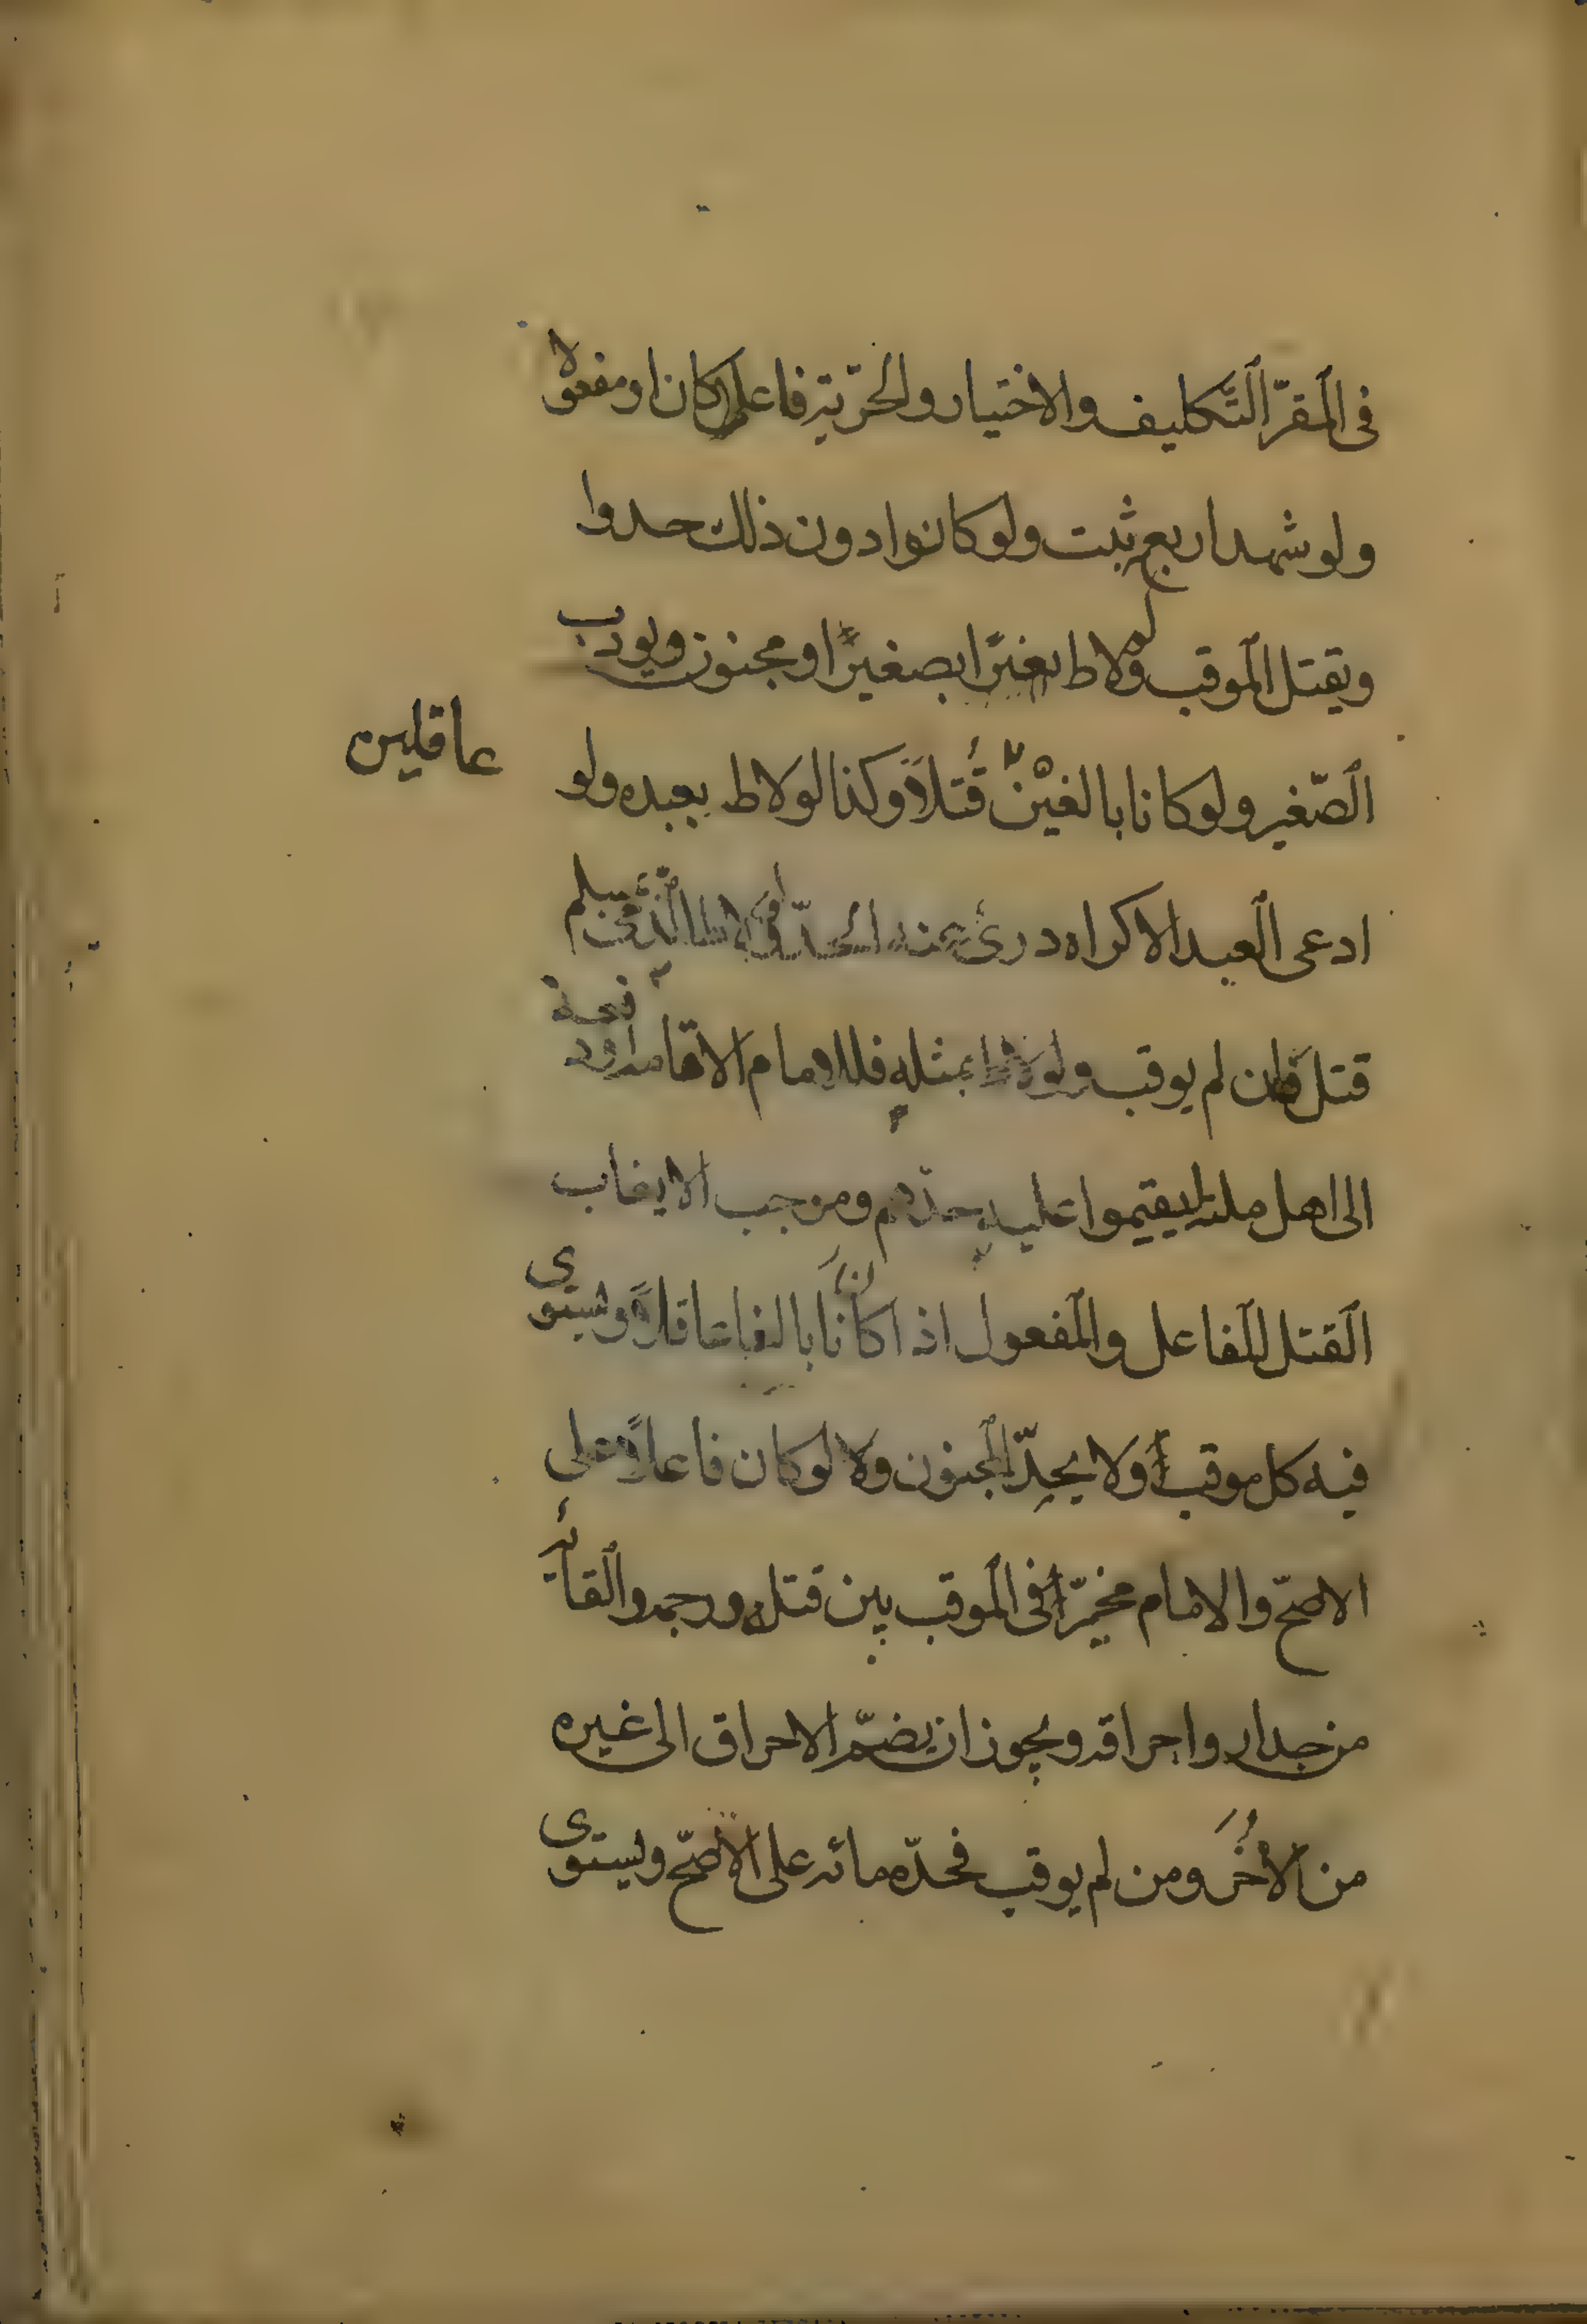 فى المقرّ التّكليف والاختيار والحرّية فاعلا كان او مفعولا
ولو شهد اربع ثبت ولو كانوا دون ذلك حدوا
ويقتل الموقب ولو لاط بصغير او مجنون ويودب
الصّغير ولو كانا بالغين قُتلا وكذا لو لاط بعبده ولو
عاقلين
ادعى العبد الاكراه درئ عنه الحدّ
قتل وان لم يوقب ولو لاط بمثله فللامام الاقامة او دفعه
الى اهل ملته ليقيموا عليه حدّهم وموجب الايقاب
القتل للفاعل والمفعول اذا كانا بالغا عاقلا ويستوى
فيه كل موقب ولا يحدّ المجنون ولا لو كان فاعلا على
الاصحّ والامام مخيّر فى الموقب بين قتله ورجمه والقائه
من جدار واحراقه ويجوز ان يضمّ الاحراق الى غيره
من الأخر ومن لم يوقب فحدّه مائه على الاصحّ ويستوى